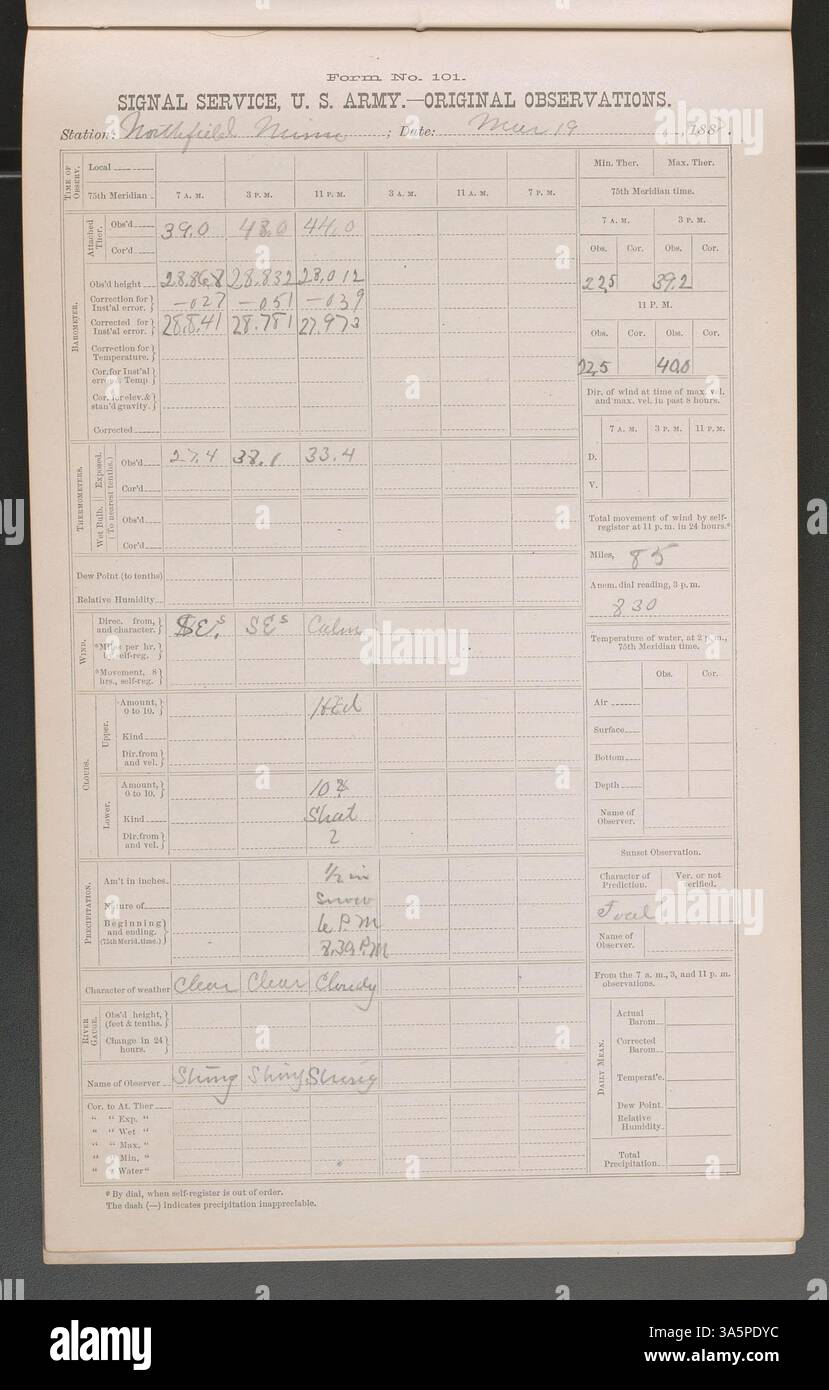 Form No. 101.
SIGNAL SERVICE, U. S. ARMY.—ORIGINAL OBSERVATIONS.
Station: Northfield Minn ; Date: Mar 19 , 188 .
TIME OF OBSERV.
Local
75th Meridian 7 A. M. 3 P. M. 11 P. M. 3 A. M. 11 A. M. 7 P. M.
BAROMETER.
Attached Ther.
Obs'd 39.0 48.0 44.0
Cor'd
Obs'd height 28.868 28.832 28.012
Correction for Inst'al error. } —027 —051 —039
Corrected for Inst'al error. } 28.841 28.781 27.973
Correction for Temperature. }
Cor. for Inst'al error & Temp }
Cor. for elev. & stan'd gravity. }
Corrected
THERMOMETERS.
Exposed. (To nearest tenths.)
Obs'd 27.4 38.1 33.4
Cor'd
Wet Bulb.
Obs'd
Cor'd
Dew Point (to tenths)
Relative Humidity
WIND.
Direc. from, and character. } SE.s SE s Calm
*Miles per hr. by self-reg. }
*Movement, 8 hrs., self-reg. }
CLOUDS.
Upper.
Amount, 0 to 10. }
Kind
Dir. from and vel. }
Lower.
Amount, 0 to 10. } 10
Kind Strat
Dir. from and vel. } 2
PRECIPITATION.
Am't in inches. 1/2 in
Nature of snow
Beginning and ending. (75th Merid. time.) } 6 P.M
8.30 P.M
Character of weather Clear Clear Cloudy
RIVER GAUGE.
Obs'd height, (feet & tenths. }
Change in 24 hours. }
Name of Observer
Cor. to At. Ther
" " Exp. "
" " Wet "
" " Max. "
" " Min. "
" " Water "
* By dial, when self-register is out of order.
The dash (—) indicates precipitation inappreciable.
Min. Ther. Max. Ther.
75th Meridian time.
7 A. M. 3 P. M.
Obs. Cor. Obs. Cor.
22.5 39.2
11 P. M.
Obs. Cor. Obs. Cor.
22.5 40.0
Dir. of wind at time of max. vel. and max. vel. in past 8 hours.
7 A. M. 3 P. M. 11 P. M.
D.
V.
Total movement of wind by self-register at 11 p. m. in 24 hours.*
Miles, 85
Anem. dial reading, 3 p. m.
830
Temperature of water, at 2 p. m., 75th Meridian time.
Obs. Cor.
Air
Surface
Bottom
Depth
Name of Observer.
Sunset Observation.
Character of Prediction. Ver. or not verified.
Name of Observer.
From the 7 a. m., 3, and 11 p. m. observations.
DAILY MEAN.
Actual Barom
Corrected Barom
Temperat'e.
Dew Point.
Relative Humidity
Total Precipitation
alamy
Image ID: 3A5PDYC
www.alamy.com